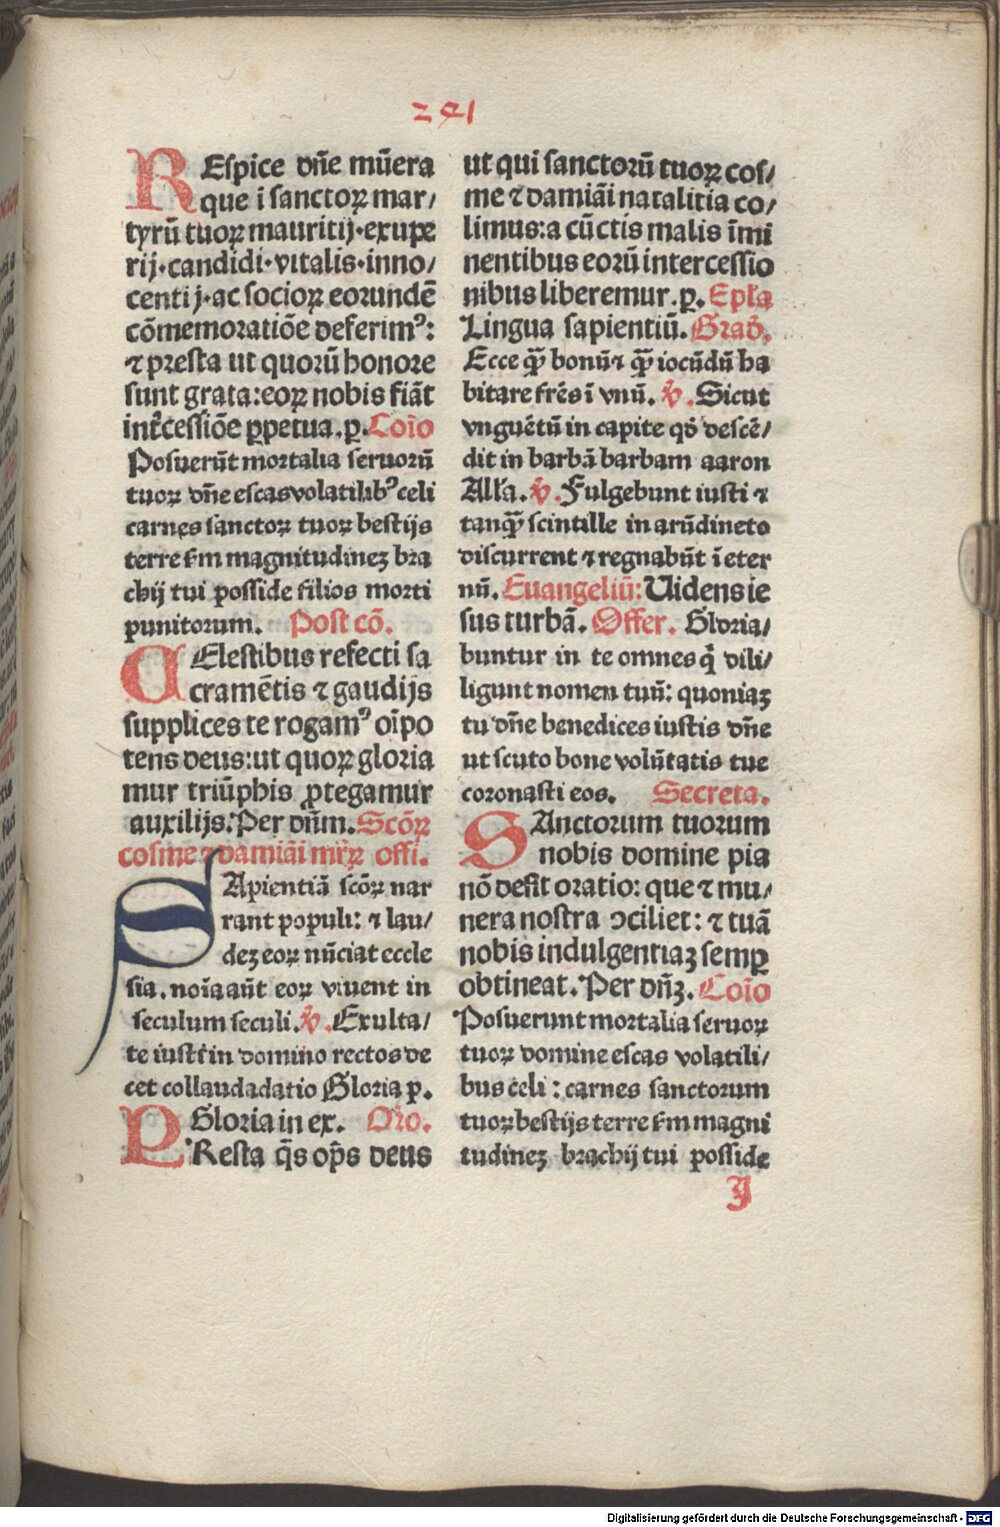 291
REspice dn̄e mūera
que ī sanctoꝝ mar/
tyrū tuoꝝ mauritij·exupe
rij·candidi·vitalis·inno/
centij·ac socioꝝ eorundē
cōmemoratiōe deferimꝰ:
⁊ presta ut quorū honore
sunt grata:eoꝝ nobis fiāt
int̄cessiōe ꝑpetua.ꝑ.Coīo
Posuerūt mortalia seruorū
tuoꝝ dn̄e escas volatilibꝰ celi
carnes sanctoꝝ tuoꝝ bestijs
terre ẜm magnitudinez bra
chij tui posside filios morti
punitorum. Post cō.
CElestibus refecti sa
cramētis ⁊ gaudijs
supplices te rogamꝰ oīpo
tens deus:ut quoꝝ gloria
mur triūphis ꝓtegamur
auxilijs.Per dn̄m.Scōꝝ
cosme ⁊ damiāi mr̄ꝝ offi.
SApientiā scōꝝ nar
rant populi: ⁊ lau/
dez eoꝝ nūciat eccle
sia. noīa aūt eoꝝ viuent in
seculum seculi.℣.Exulta/
te iusti in domino rectos de
cet collaudadatio Gloria ꝑ.
Gloria in ex. Oro.
PResta q̄s op̄s deus
ut qui sanctorū tuoꝝ cos/
me ⁊ damiāi natalitia co/
limus:a cūctis malis īmi
nentibus eorū intercessio
nibus liberemur.ꝑ. Epl̄a
Lingua sapientiū. Grad̄.
Ecce q̄ꝫ bonū ⁊ q̄ꝫ iocūdū ha
bitare fr̄es ī vnū. ℣. Sicut
vnguētū in capite qd̄ descē/
dit in barbā barbam aaron
All̄a.℣.Fulgebunt iusti ⁊
tanq̄ꝫ scintille in arūdineto
discurrent ⁊ regnabūt ī eter
nū. Euangeliū: Uidens ie
sus turbā. Offer. Gloria/
buntur in te omnes q̄ dili/
ligunt nomen tuū: quoniaz
tu dn̄e benedices iustis dn̄e
ut scuto bone volūtatis tue
coronasti eos. Secreta.
SAnctorum tuorum
nobis domine pia
nō desit oratio: que ⁊ mu/
nera nostra ↄciliet: ⁊ tuā
nobis indulgentiaz semꝑ
obtineat. Per dn̄z. Coīo
Posuerunt mortalia seruoꝝ
tuoꝝ domine escas volatili/
bus celi: carnes sanctorum
tuoꝝ bestijs terre ẜm magni
tudinez brachij tui posside
J
Digitalisierung gefördert durch die Deutsche Forschungsgemeinschaft - DFG